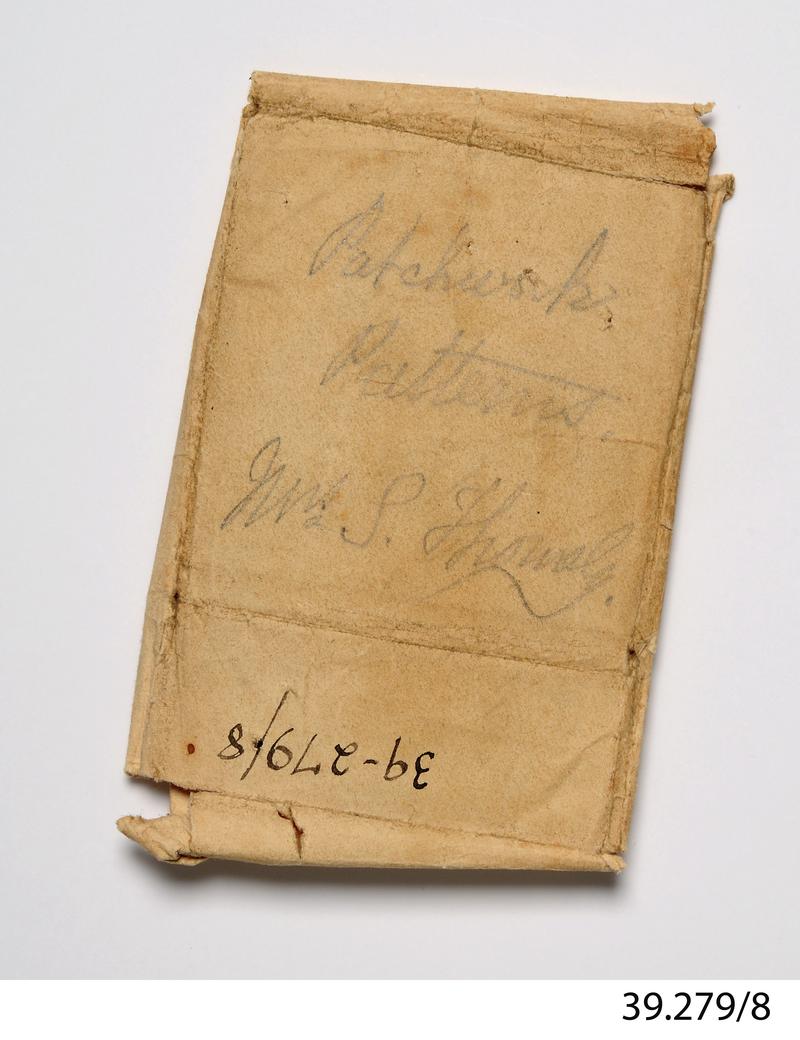 Patchwork
Patterns.
Mrs. S. Thomas.
39-279/8
39.279/8